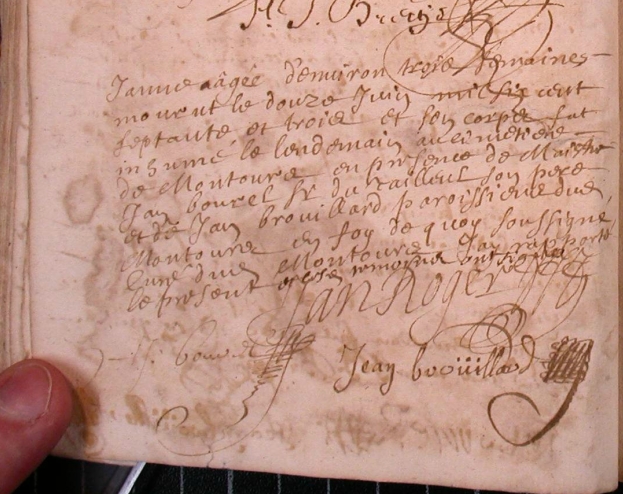 Janne aâgée d'enuiron trois semaines
mourut le douze Juin mil six cent
septante et trois et son corps fut
inhumé le lendemain au cimetiere
de Montours en presence de Maistre
Jan bourel Sr du son pere
et de Jan brouillard paroissiens dud.
Montours en foy de quoy soussigné
Curé dud. Montours Jay rapporté
le present
Jan Roger
Jean brouillard